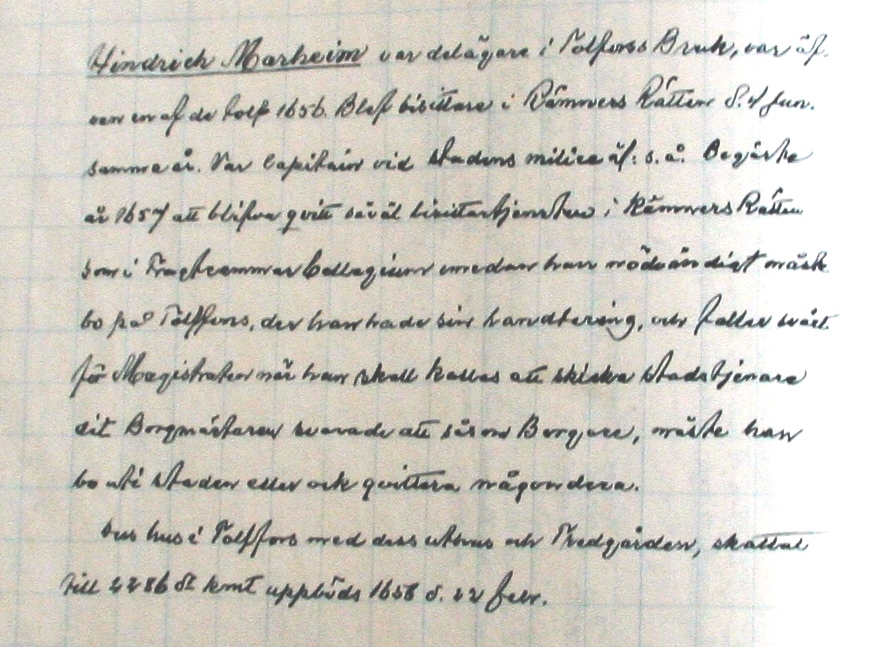 Hindrich Marheim var delägare i Tolfors Bruk, var äf-
ven en af de tolf 1656. Blef bisittare i Kämners Rätten d. 4 Jun.
samma år. Var Capitain vid stadens milice äf: s. å. Begärte
år 1657 att blifva qvitt såväl bisittartjensten i Kämners Rätten
som i Collegium emedan han nödvändigt måste
bo på Tolffors, der han hade sin handtering, och faller svårt
för Magistraten när han skall kallas att skicka stadstjenare
dit Borgmästaren svarade att såsom Borgare, måste han
bo uti staden eller ock qvittera någondera.
Dess hus i Tolffors med dess uthus och Trädgården, skattat
till 2286 dr kmt uppböds 1656 d. 22 febr.